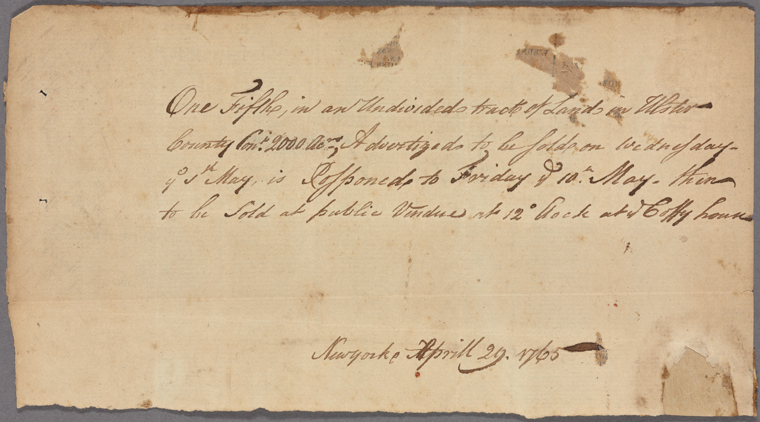 One Fifth, in an Undivided tract of Land in Ulster
County Con.g 2000 Acres, Advertized to be sold, on Wednesday
ye 1st May, is Posponed, to Friday ye 10th May. then
to be Sold at public Vendue at 12o Clock at ye Coffy house
Newyork, Aprill 29. 1765